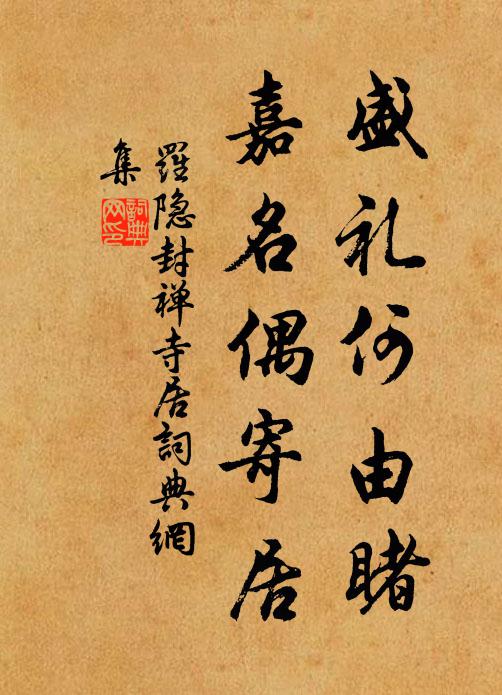 盛礼何由睹
嘉名偶寄居
羅隐封禅寺居詞典網
集
詞典
网印